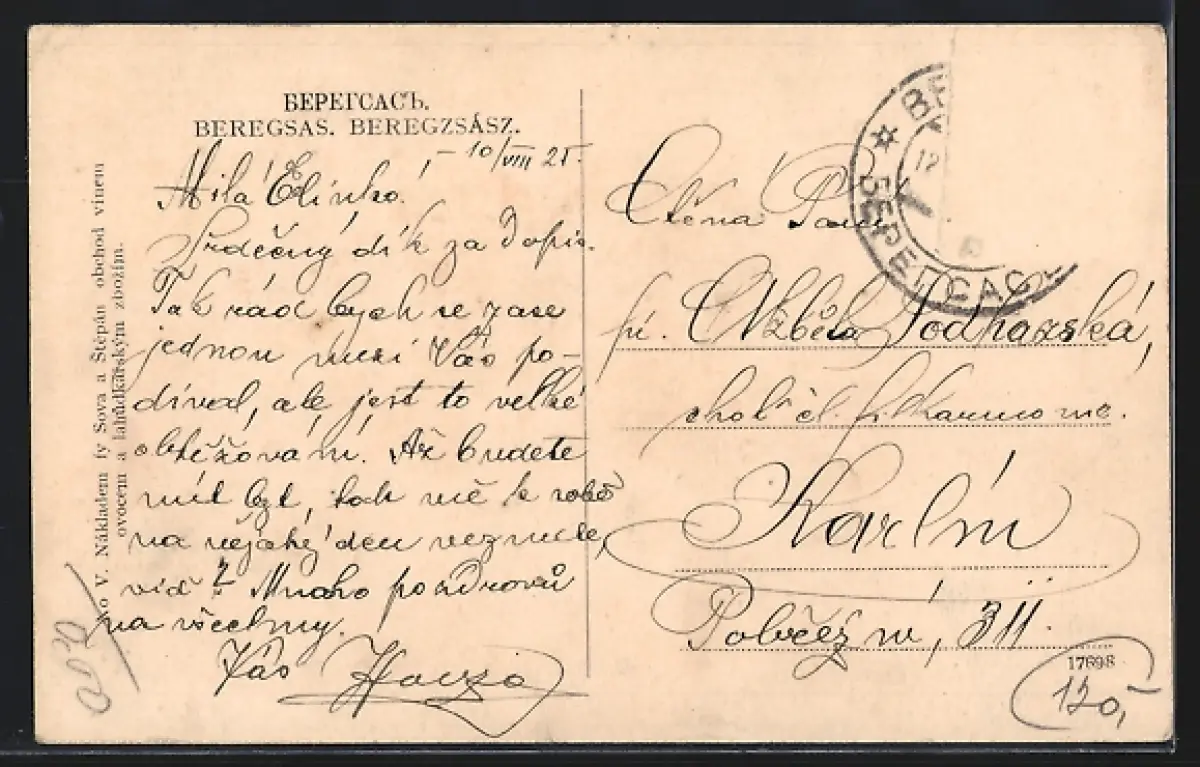 БЕРЕГСАСЪ.
BEREGSAS. BEREGZSÁSZ.
10/VIII 25.
Milá Elinko!
Srdečný dík za dopis.
Tak rád bych se zase
jednou mezi Vás po-
díval, ale jest to velké
obtěžování. Až budete
mít byt, tak mě k sobě
na nějaký den vezmete,
viď? Mnoho pozdravů
na všechny.
Váš
Nákladem fy Sova a Štěpán obchod vínem
ovocem a lahůdkářským zbožím.
БЕРЕГСАС
12
Ctěná Paní
pí. Alžběta Podhorská,
choť čl. filharmonie.
Karlín
311.
17698
120,-